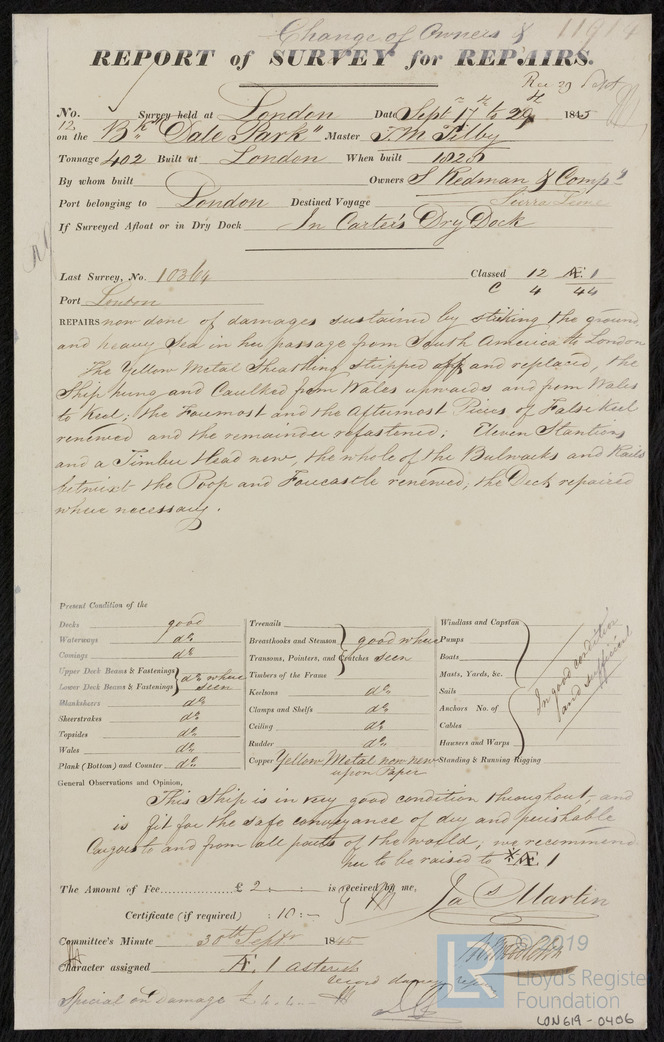 Change of Owners &
11914
REPORT of SURVEY for REPAIRS.
Rec 29
No. 12 Survey held at London Date Septr 17th to 29th 1845
on the Bk "Dale Park" Master T. M. Tilby
Tonnage 402 Built at London When built
By whom built Owners S Redman & Compy
Port belonging to London Destined Voyage Sierra Leone
If Surveyed Afloat or in Dry Dock In Carter's Dry Dock
Last Survey, No. 10364 Classed 12 Æ 1
Port London C 4 44
REPAIRS now done of damages sustained by striking the ground
and heavy Sea in her passage from South America to London
The Yellow Metal Sheathing stripped off and replaced, the
Ship hung and Caulked from Wales upwards and from Wales
to Keel; the Foremost and the Aftermost Pieces of False Keel
renewed and the remainder refastened; Eleven Stantions
and a Timber Head new, the whole of the Bulwarks and Rails
betwixt the Poop and Forecastle renewed; the Deck repaired
where necessary.
Present Condition of the
Decks good
Waterways do
Comings do
Upper Deck Beams & Fastenings } do where
Lower Deck Beams & Fastenings } seen
Plankshears do
Sheerstrakes do
Topsides do
Wales do
Plank (Bottom) and Counter do
Treenails
Breasthooks and Stemson } good where
Transoms, Pointers, and Crutches } seen
Timbers of the Frame
Keelsons do
Clamps and Shelfs do
Ceiling do
Rudder do
Copper Yellow Metal now new
upon Paper
Windlass and Capstan
Pumps
Boats
Masts, Yards, &c.
Sails
Anchors No. of
Cables
Hawsers and Warps
Standing & Running Rigging
In good condition
and sufficient
General Observations and Opinion,
This Ship is in very good condition throughout, and
is fit for the safe conveyance of dry and perishable
Cargoes to and from all parts of the world, we recommend
her to be raised to * Æ 1
The Amount of Fee £ 2 . . is received by me,
Certificate (if required) : 10 : – Jas Martin
Committee's Minute 30th Septr 1845
Character assigned Æ 1 asterisk
record damage repairs
Special on Damage £
© 2019
LR
Lloyd's Register
Foundation
LON619-0406